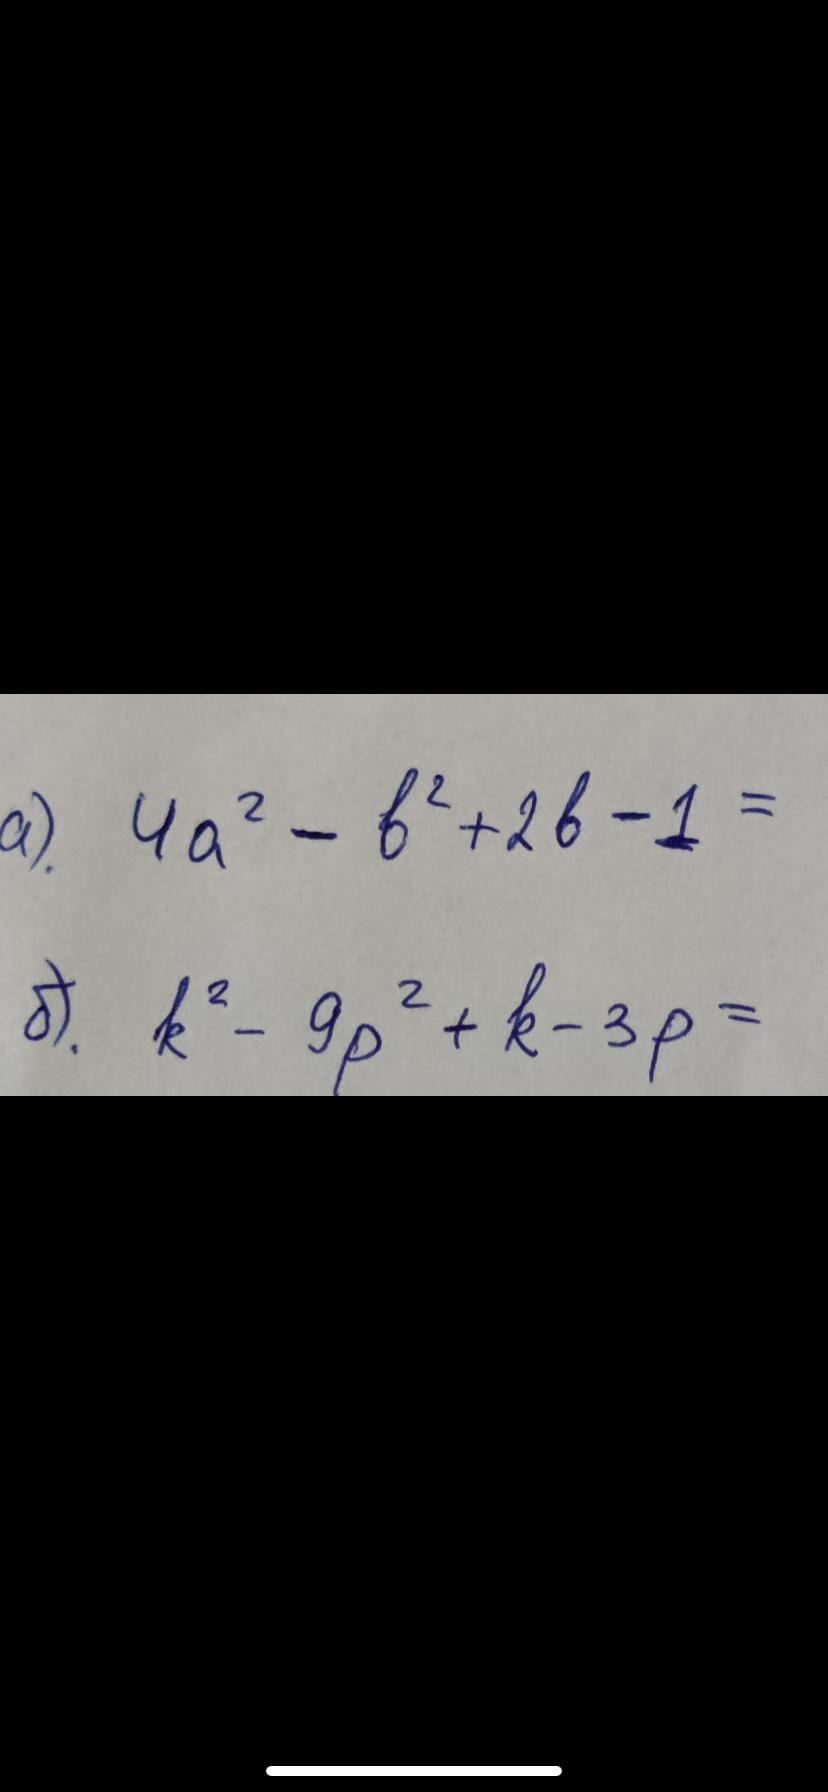 а). 4a² - b² + 2b - 1 =
б). k² - 9p² + k - 3p =